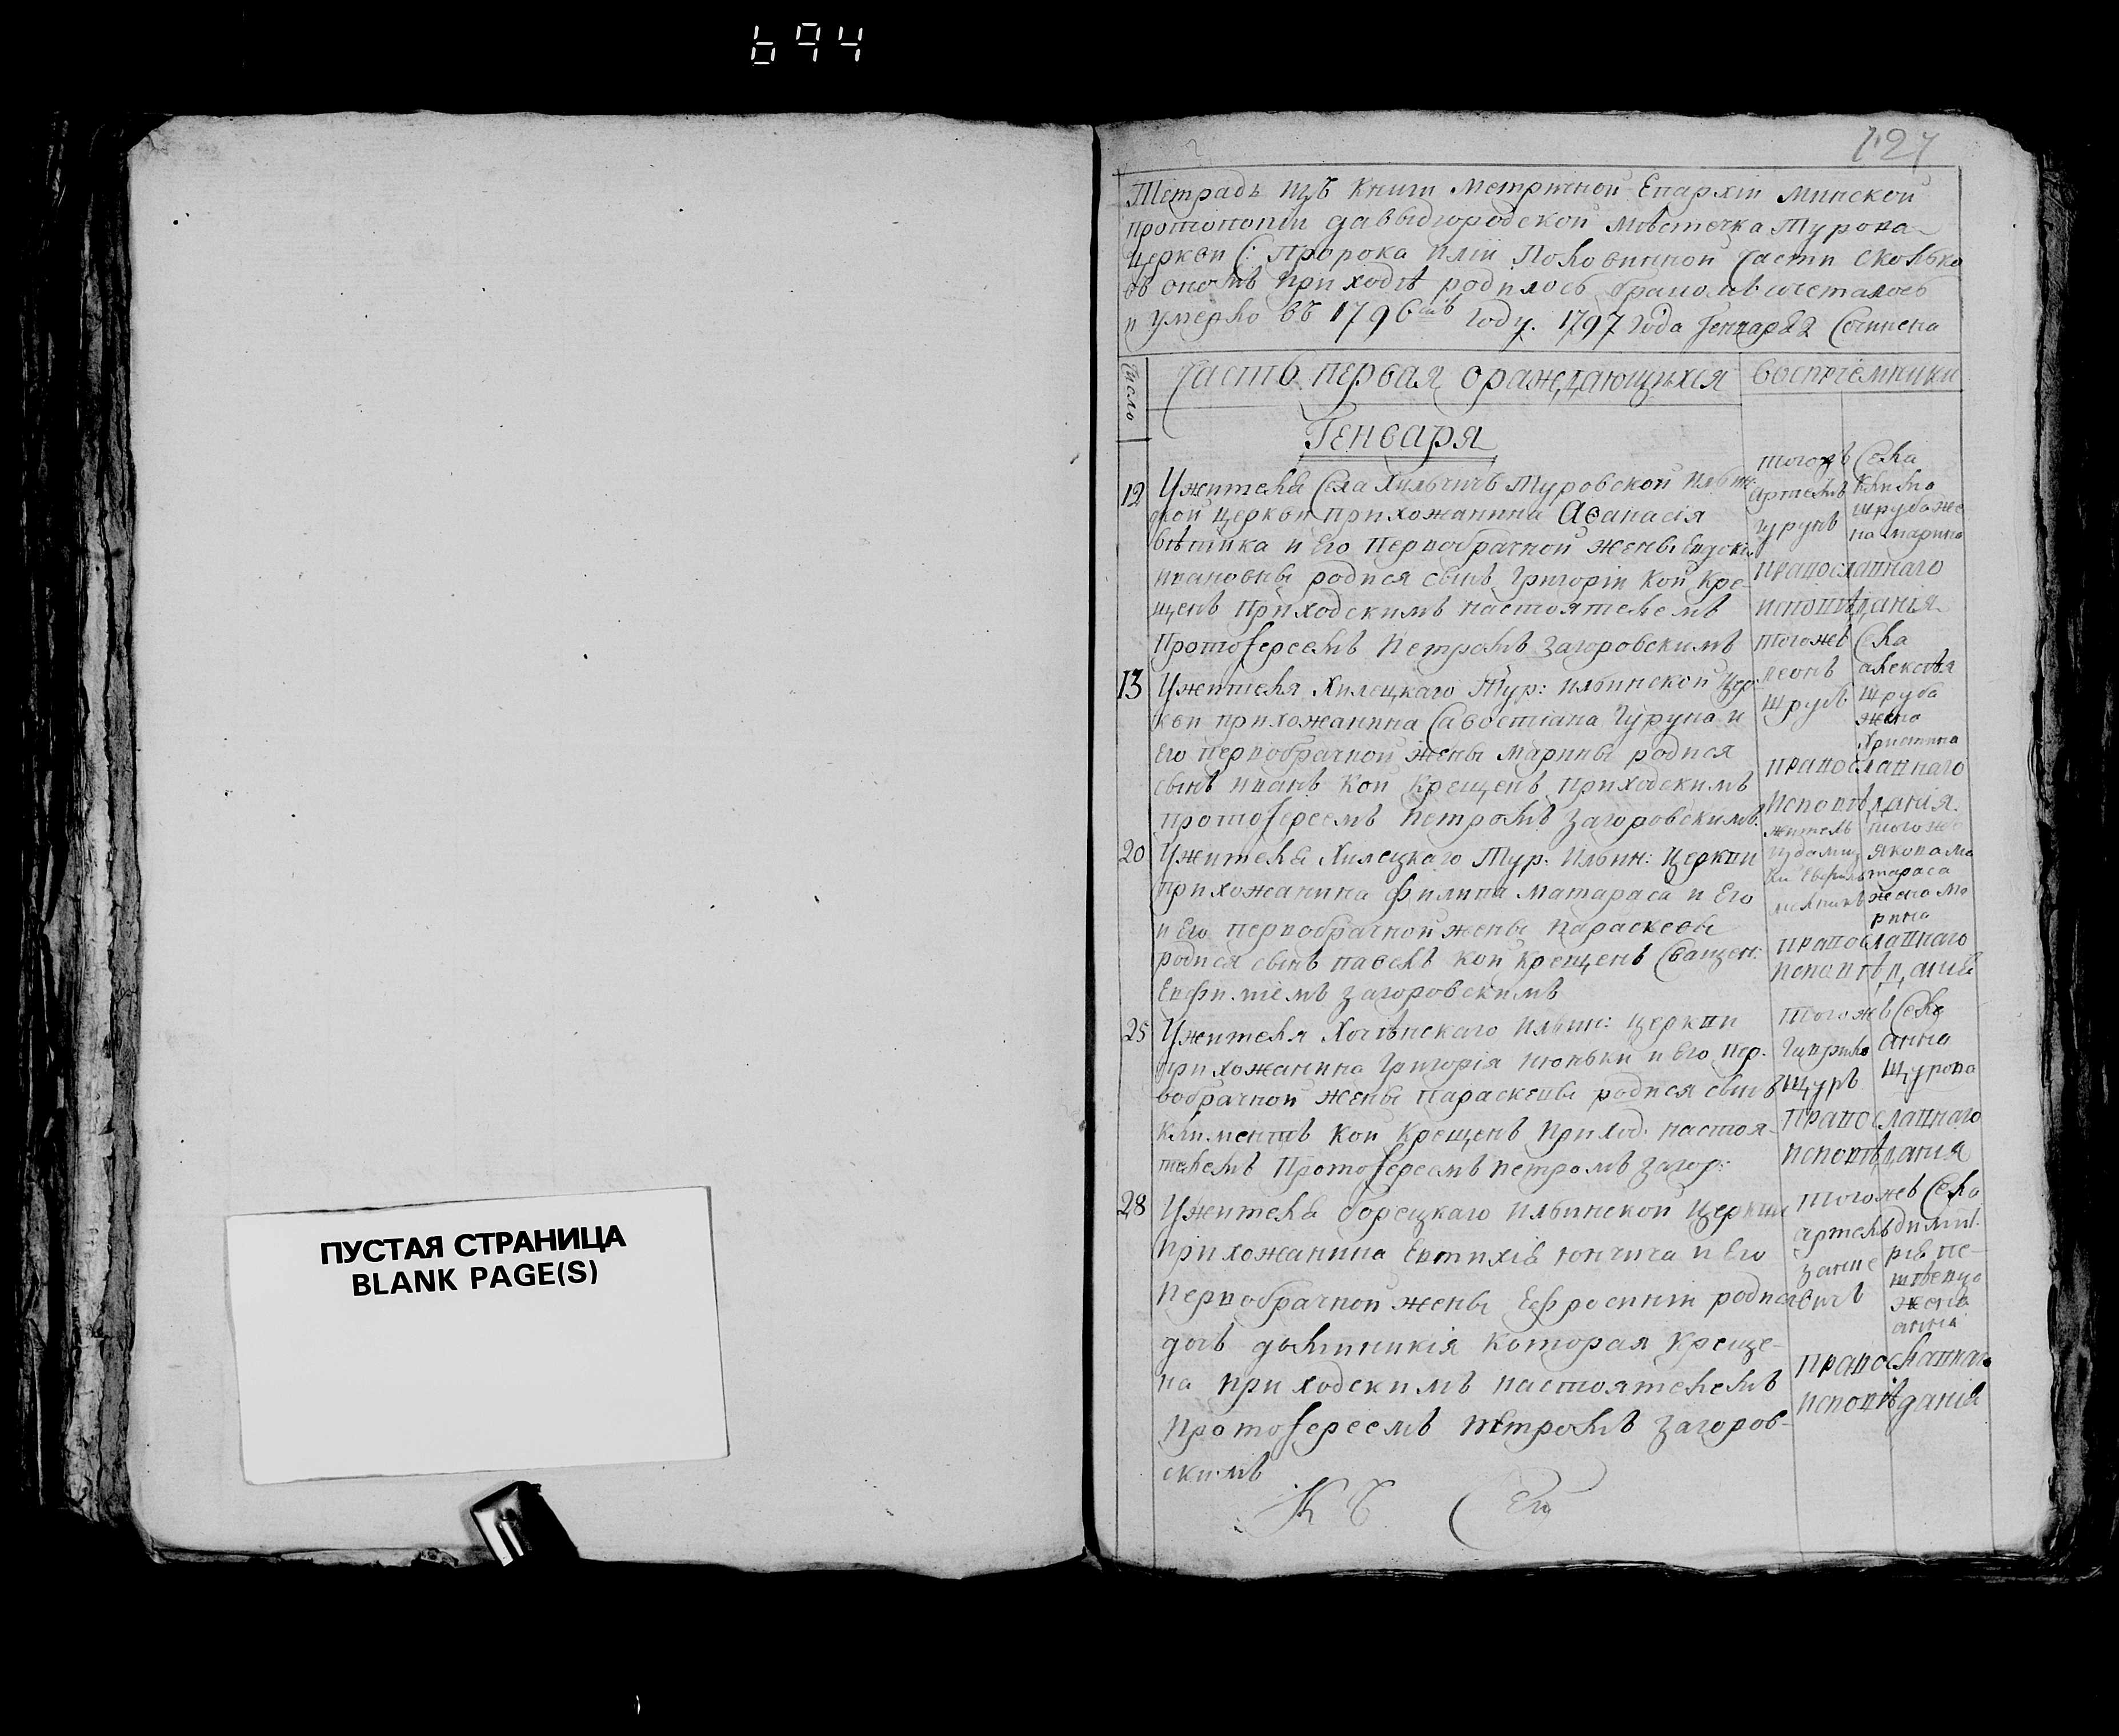 694
ПУСТАЯ СТРАНИЦА
BLANK PAGE(S)
127
Тетрадь изъ книги метричной Епархіи минской
протопопіи давыдгородской мѣстечка Турова
церкви С: Пророка Иліи Половинной части сколько
въ ономъ приходѣ родилось бракомъ сочеталось
и умерло въ 1796мъ году. 1797 года Генваря 2 Сочинена
Число
Часть первая о раждающихся
воспріемники
Генваря
12
У жителя Села Хильчичъ Туровской Ильин:
ской церкви прихожанина Аѳанасія
и Его Первобрачной жены Евдокіи
ивановны родися сынъ Григорій кой кре-
щенъ приходскимъ настоятелемъ
Протоіереемъ Петромъ Загоровскимъ
тогожъ Села
Артемъ
Гурунъ
Клима
шруба же
на марина
православнаго
исповѣданія
13
У жителя Хилецкаго Тур: ильинской цер:
кви прихожанина Савостіана Гуруна и
Его первобрачной жены марины родися
сынъ иванъ кой крещенъ приходскимъ
протоіереемъ петромъ Загоровскимъ
тогожъ Села
леонъ
шрубъ
алексѣя
шруба
жена
Христина
православнаго
исповѣданія.
20
У жителя Хилецкаго Тур. Ильин: церкви
прихожанина Филипа матараса и Его
и Его первобрачной жены параскевы
родися сынъ павелъ кой крещенъ Священ:
Евфиміемъ загоровскимъ
житель
тогоже
якова ма
тараса
жена ма
рина
православнаго
исповѣданій
25
У жителя Ильин: церкви
прихожанина Григорія и Его пер.
вобрачной жены параскевы родися сынъ
климентъ кой крещенъ приход: настоя-
телемъ Протоіереемъ петромъ загор:
тогожъ Села
Гаврило
щуръ
анна
щурова
православнаго
исповѣданія
28
У жителя борецкаго ильинской церкви
прихожанина Евтихія юнчича и Его
первобрачной жены Ефросиніи родися
дочь домникія которая креще-
на приходскимъ настоятелемъ
протоіереемъ петромъ загоров-
скимъ
тогожъ Села
артемъ
зане
вичъ
димит
рія
жена
анна
православнаго
исповѣданія